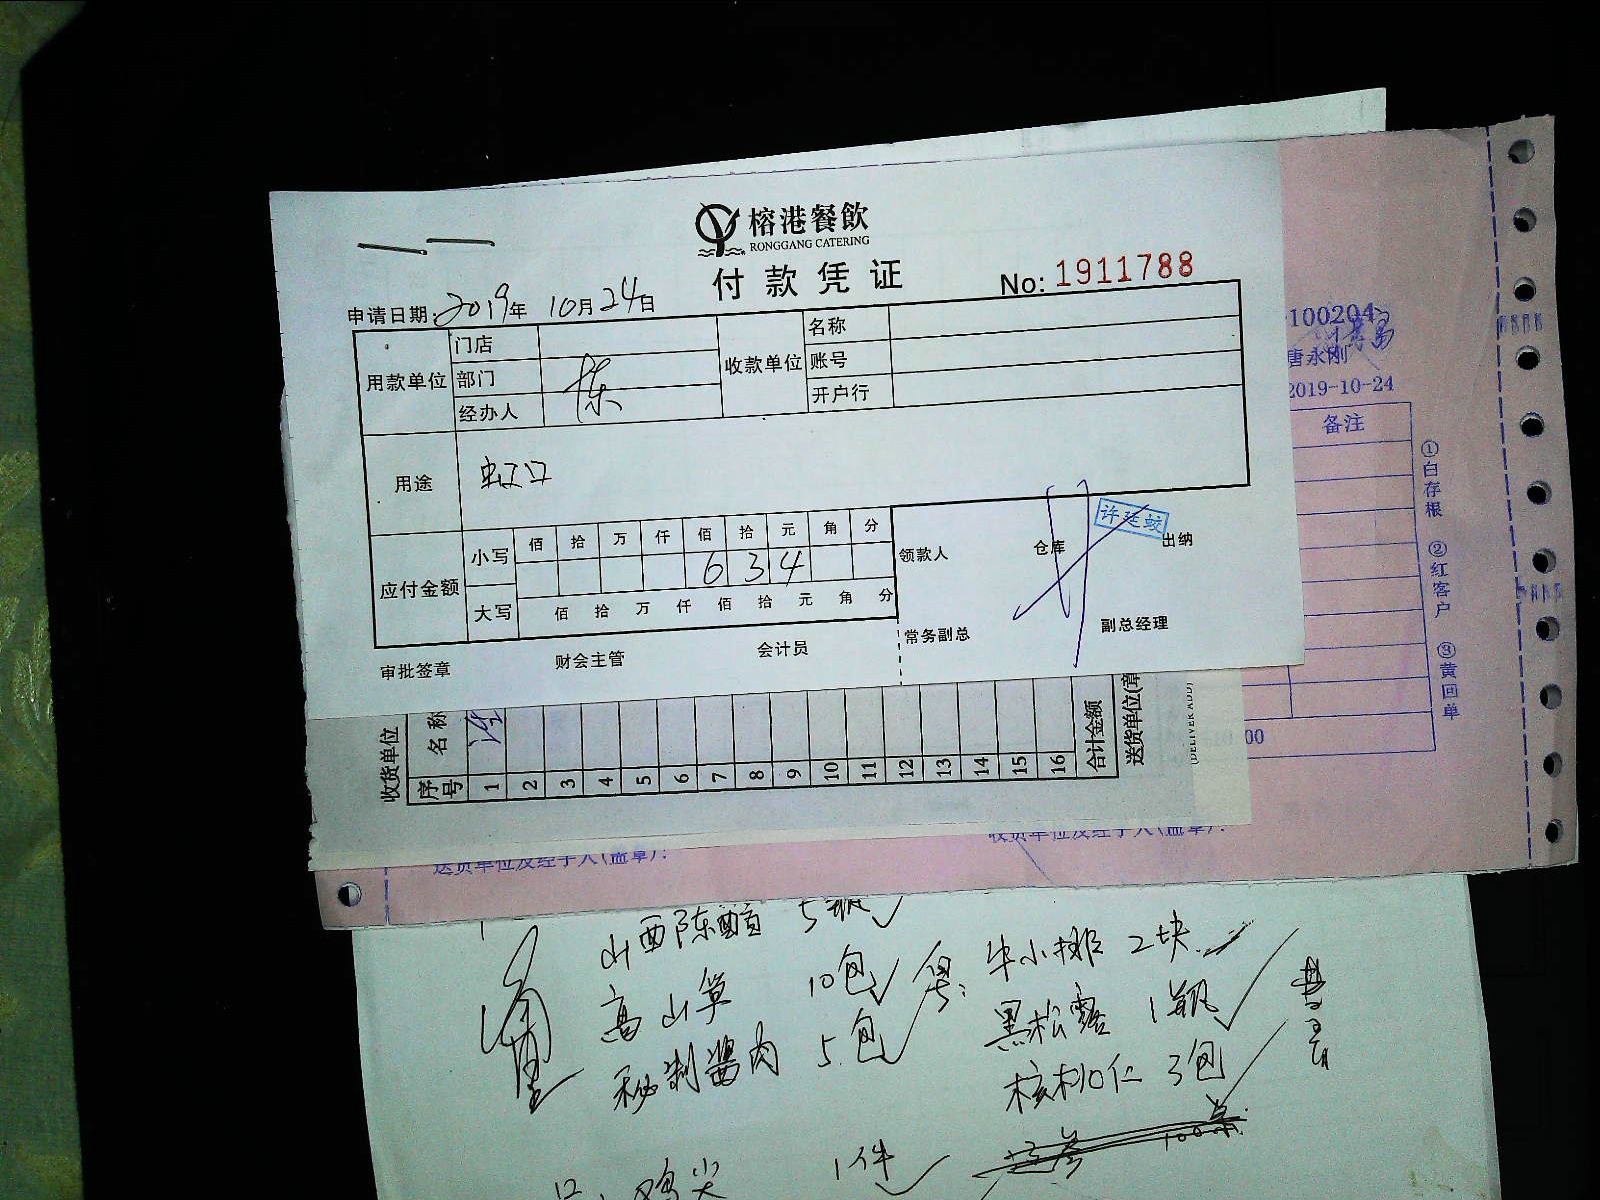 榕港餐飲
RONGGANG CATERING
付款凭证
No: 1911788
申请日期: 2019年 10月 24日
用款单位 门店 收款单位 名称
部门 账号
经办人 开户行
陈
用途 虹口
应付金额 小写 佰 拾 万 仟 佰 拾 元 角 分
6 3 4
大写 佰 拾 万 仟 佰 拾 元 角 分
领款人 仓库 出纳
许廷蛟
常务副总 副总经理
审批签章 财会主管 会计员
100204
唐永刚
2019-10-24
备注
①白存根 ②红客户 ③黄回单
00
收货单位
序号 名称
1 2 3 4 5 6 7 8 9 10 11 12 13 14 15 16
合计金额
送货单位(章
(DELIVER ADD)
送货单位及经手人(盖章):
收货单位及经手人(盖章):
山西陈醋 5瓶
高山笋 10包
牛小排 2块
秘制酱肉 5包
黑松露 1瓶
核桃仁 3包
鸡尖 1件